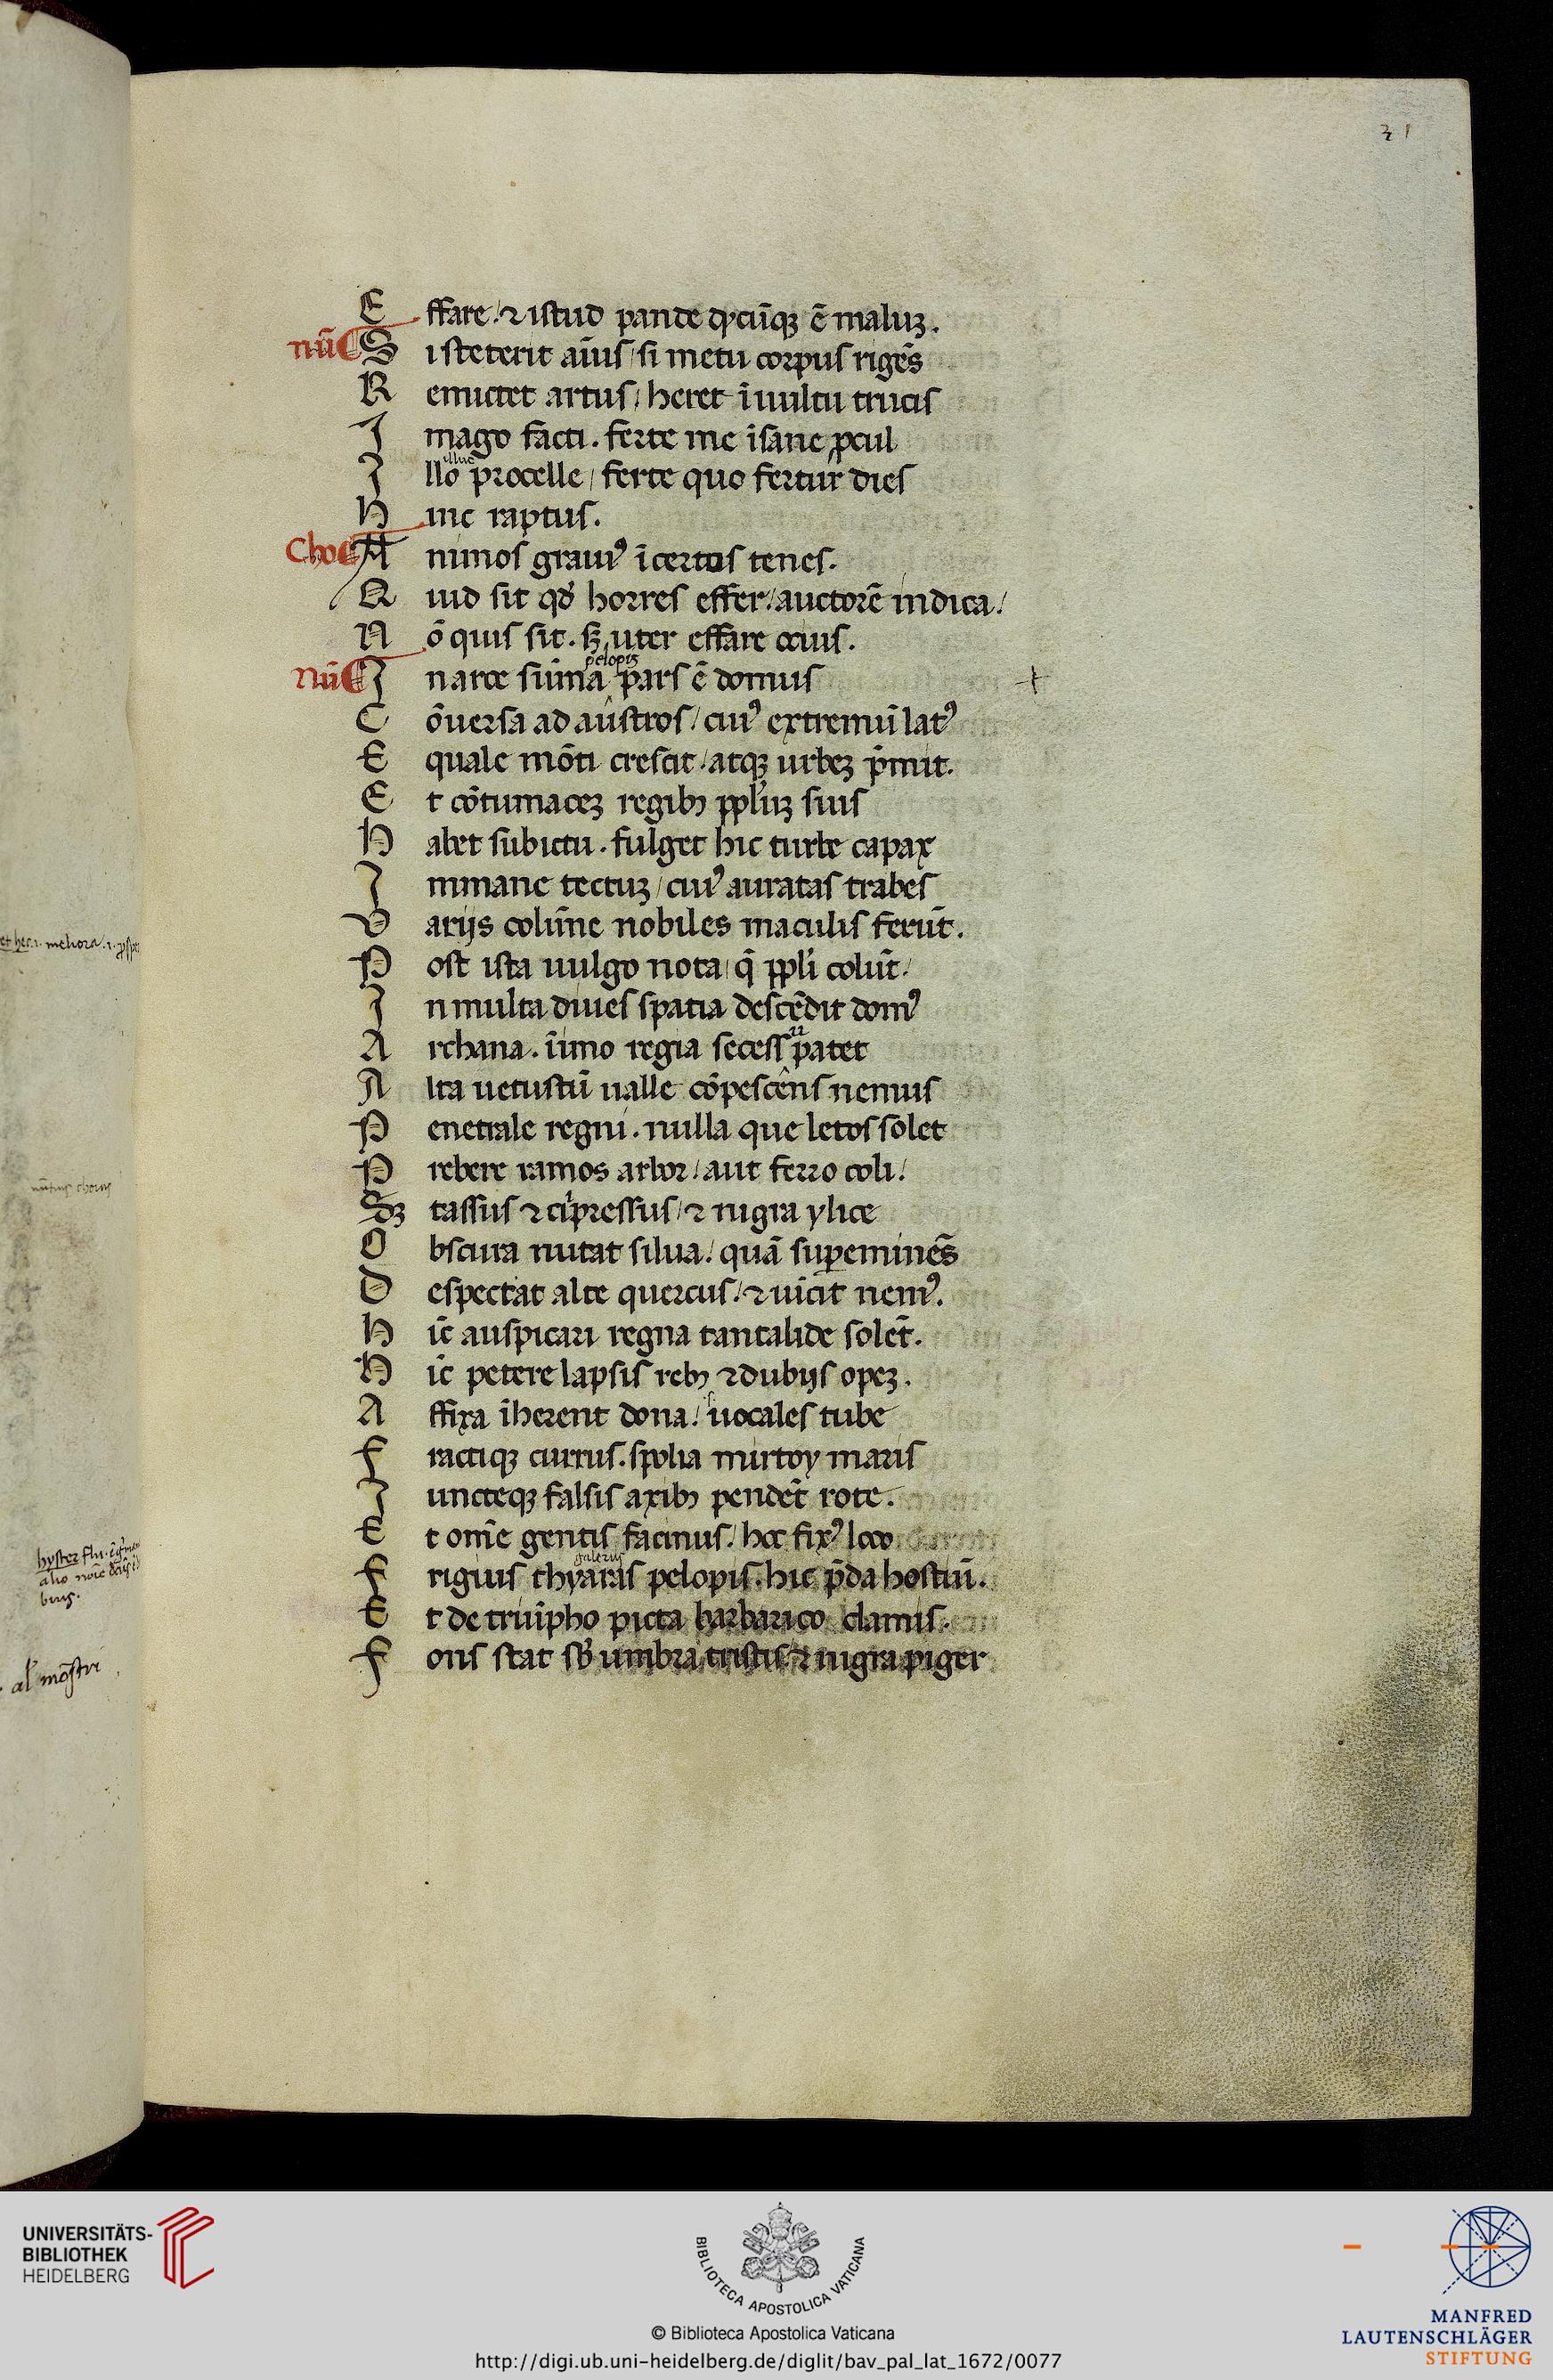 31
E ffare / ⁊ istud pande qͥcūqꝫ ē maluꝫ.
nū
S i steterit aīus / si metu corpus rigēs
R emittet artus / heret ī uultu trucis
I mago facti. ferte me īsane ꝓcul
illuc
I llo procelle / ferte quo fertur dies
H inc raptus.
Cho
A nimos grauiꝰ īcertos tenes.
Q uid sit qđ horres effer / auctorē indica /
N ō quis sit. sꝫ uter effare ocius.
pelopis
Nū
I n arce sūma pars ē domus
C ōuersa ad austros / cuiꝰ extremū latꝰ
E quale mōti crescit / atqꝫ urbeꝫ p̄mit.
E t cōtumaceꝫ regibꝫ ppl'uꝫ suis
H abet sub ictu. fulget hic turbe capax
I mmane tectuꝫ / cuiꝰ auratas trabes
V arijs colūne nobiles maculis ferūt.
P ost ista uulgo nota / q̄ ppl'i colūt /
I n multa diues spatia descēdit domꝰ
A rchana. ī imo regia secessu patet
A lta uetustū ualle cōpescēns nemus
P enetrale regni. nulla que letos solet
P rebere ramos arbor / aut ferro coli /
Sꝫ tassus ⁊ cipressus / ⁊ nigra ylice
O bscura nutat silua / quā suꝑeminēs
D espectat alte quercus / ⁊ uīcit nemꝰ.
H īc auspicari regna tantalide solēt.
H īc petere lapsis rebꝫ ⁊ dubijs opeꝫ.
A ffixa īherent dona / uocales tube
F ractiqꝫ currus. spolia mirtoy maris
I uncteqꝫ falsis axibꝫ pendēt rote.
E t om̄e gentis facinus / hoc fixꝰ loco
galerus
F rigius thyaras pelopis. hic p̄da hostiū.
E t de triūpho picta barbarico clamis.
F ons stat sƀ umbra tristis / ⁊ nigra piger
al' mōstri
UNIVERSITÄTS-
BIBLIOTHEK
HEIDELBERG
BIBLIOTECA APOSTOLICA VATICANA
© Biblioteca Apostolica Vaticana
http://digi.ub.uni-heidelberg.de/diglit/bav_pal_lat_1672/0077
MANFRED
LAUTENSCHLÄGER
STIFTUNG